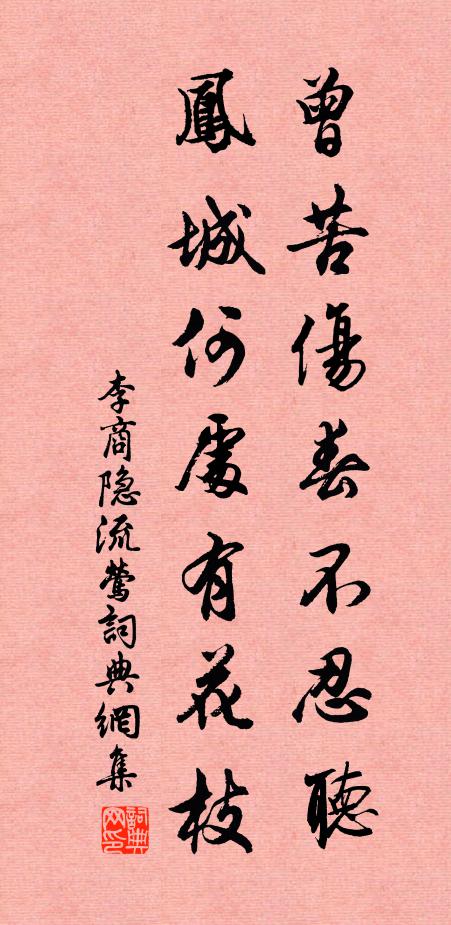 曾苦傷春不忍聽
鳳城何處有花枝
李商隐流鶯詞典網集
詞典网印